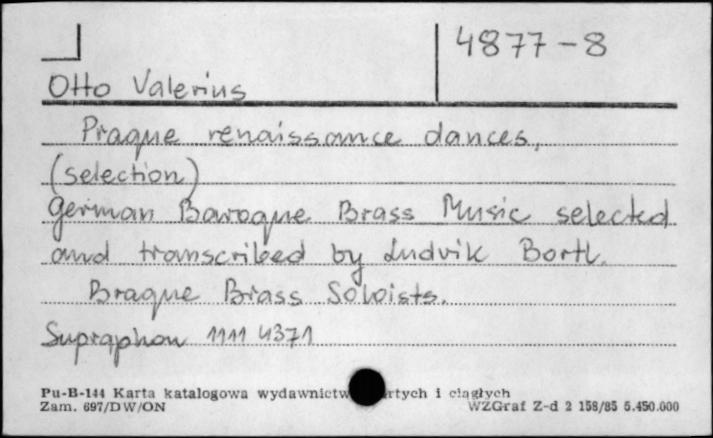 4877-8
Otto Valerius
Prague renaissance dances,
(selection)
German Baroque Brass Music selected
and transcribed by Ludvik Bortl.
Braque Brass Soloists.
Supraphon 1111 4371
Pu-B-144 Karta katalogowa wydawnictw i ciągłych
Zam. 697/DW/ON WZGraf Z-d 2 158/85 5.450.000